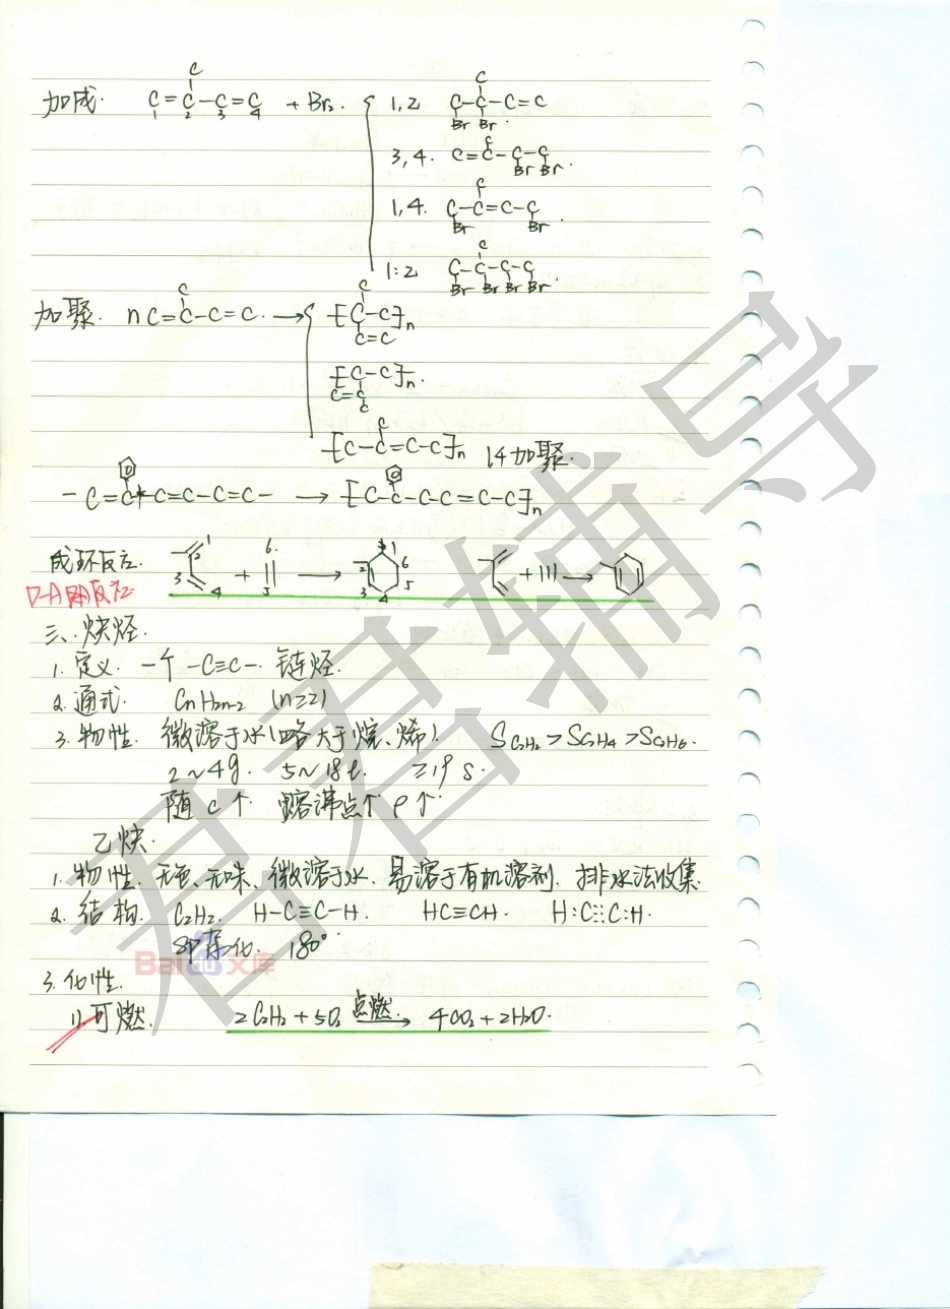 加成. C=C-C=C + Br₂. 1,2 C-C-C=C
C 1 2 3 4 C Br Br.
3,4. C=C-C-C C Br Br.
1,4. C-C=C-C C Br Br.
1:2 C-C-C-C C Br Br Br Br.
加聚. nC=C-C=C. → [C-C]n
C C C=C
[C-C]n.
C=C C
[C-C=C-C]n 1,4加聚.
C
-C=C*C=C-C-C=C- → [C-C-C-C-C=C-C]n
成环反应. 1 2 3 4 + 6. 5 → 1 2 3 4 5 6 + →
D-A反应
三、炔烃.
1. 定义. 一个 -C≡C-. 链烃.
2. 通式. CnH2n-2 (n≥2)
3. 物性. 微溶于水(略大于烷、烯). SC₂H₂ > SC₂H₄ > SC₂H₆.
2~4g. 5~18l. ≥19 s.
随 C↑ 熔沸点↑ ρ↑
乙炔.
1. 物性. 无色、无味、微溶于水. 易溶于有机溶剂. 排水法收集.
2. 结构. C₂H₂. H-C≡C-H. HC≡CH. H:C⫶⫶C:H.
SP杂化. 180°.
3. 化性.
1) 可燃. 2C₂H₂ + 5O₂ 点燃→ 4CO₂ + 2H₂O.
Baidu文库
君君辅导